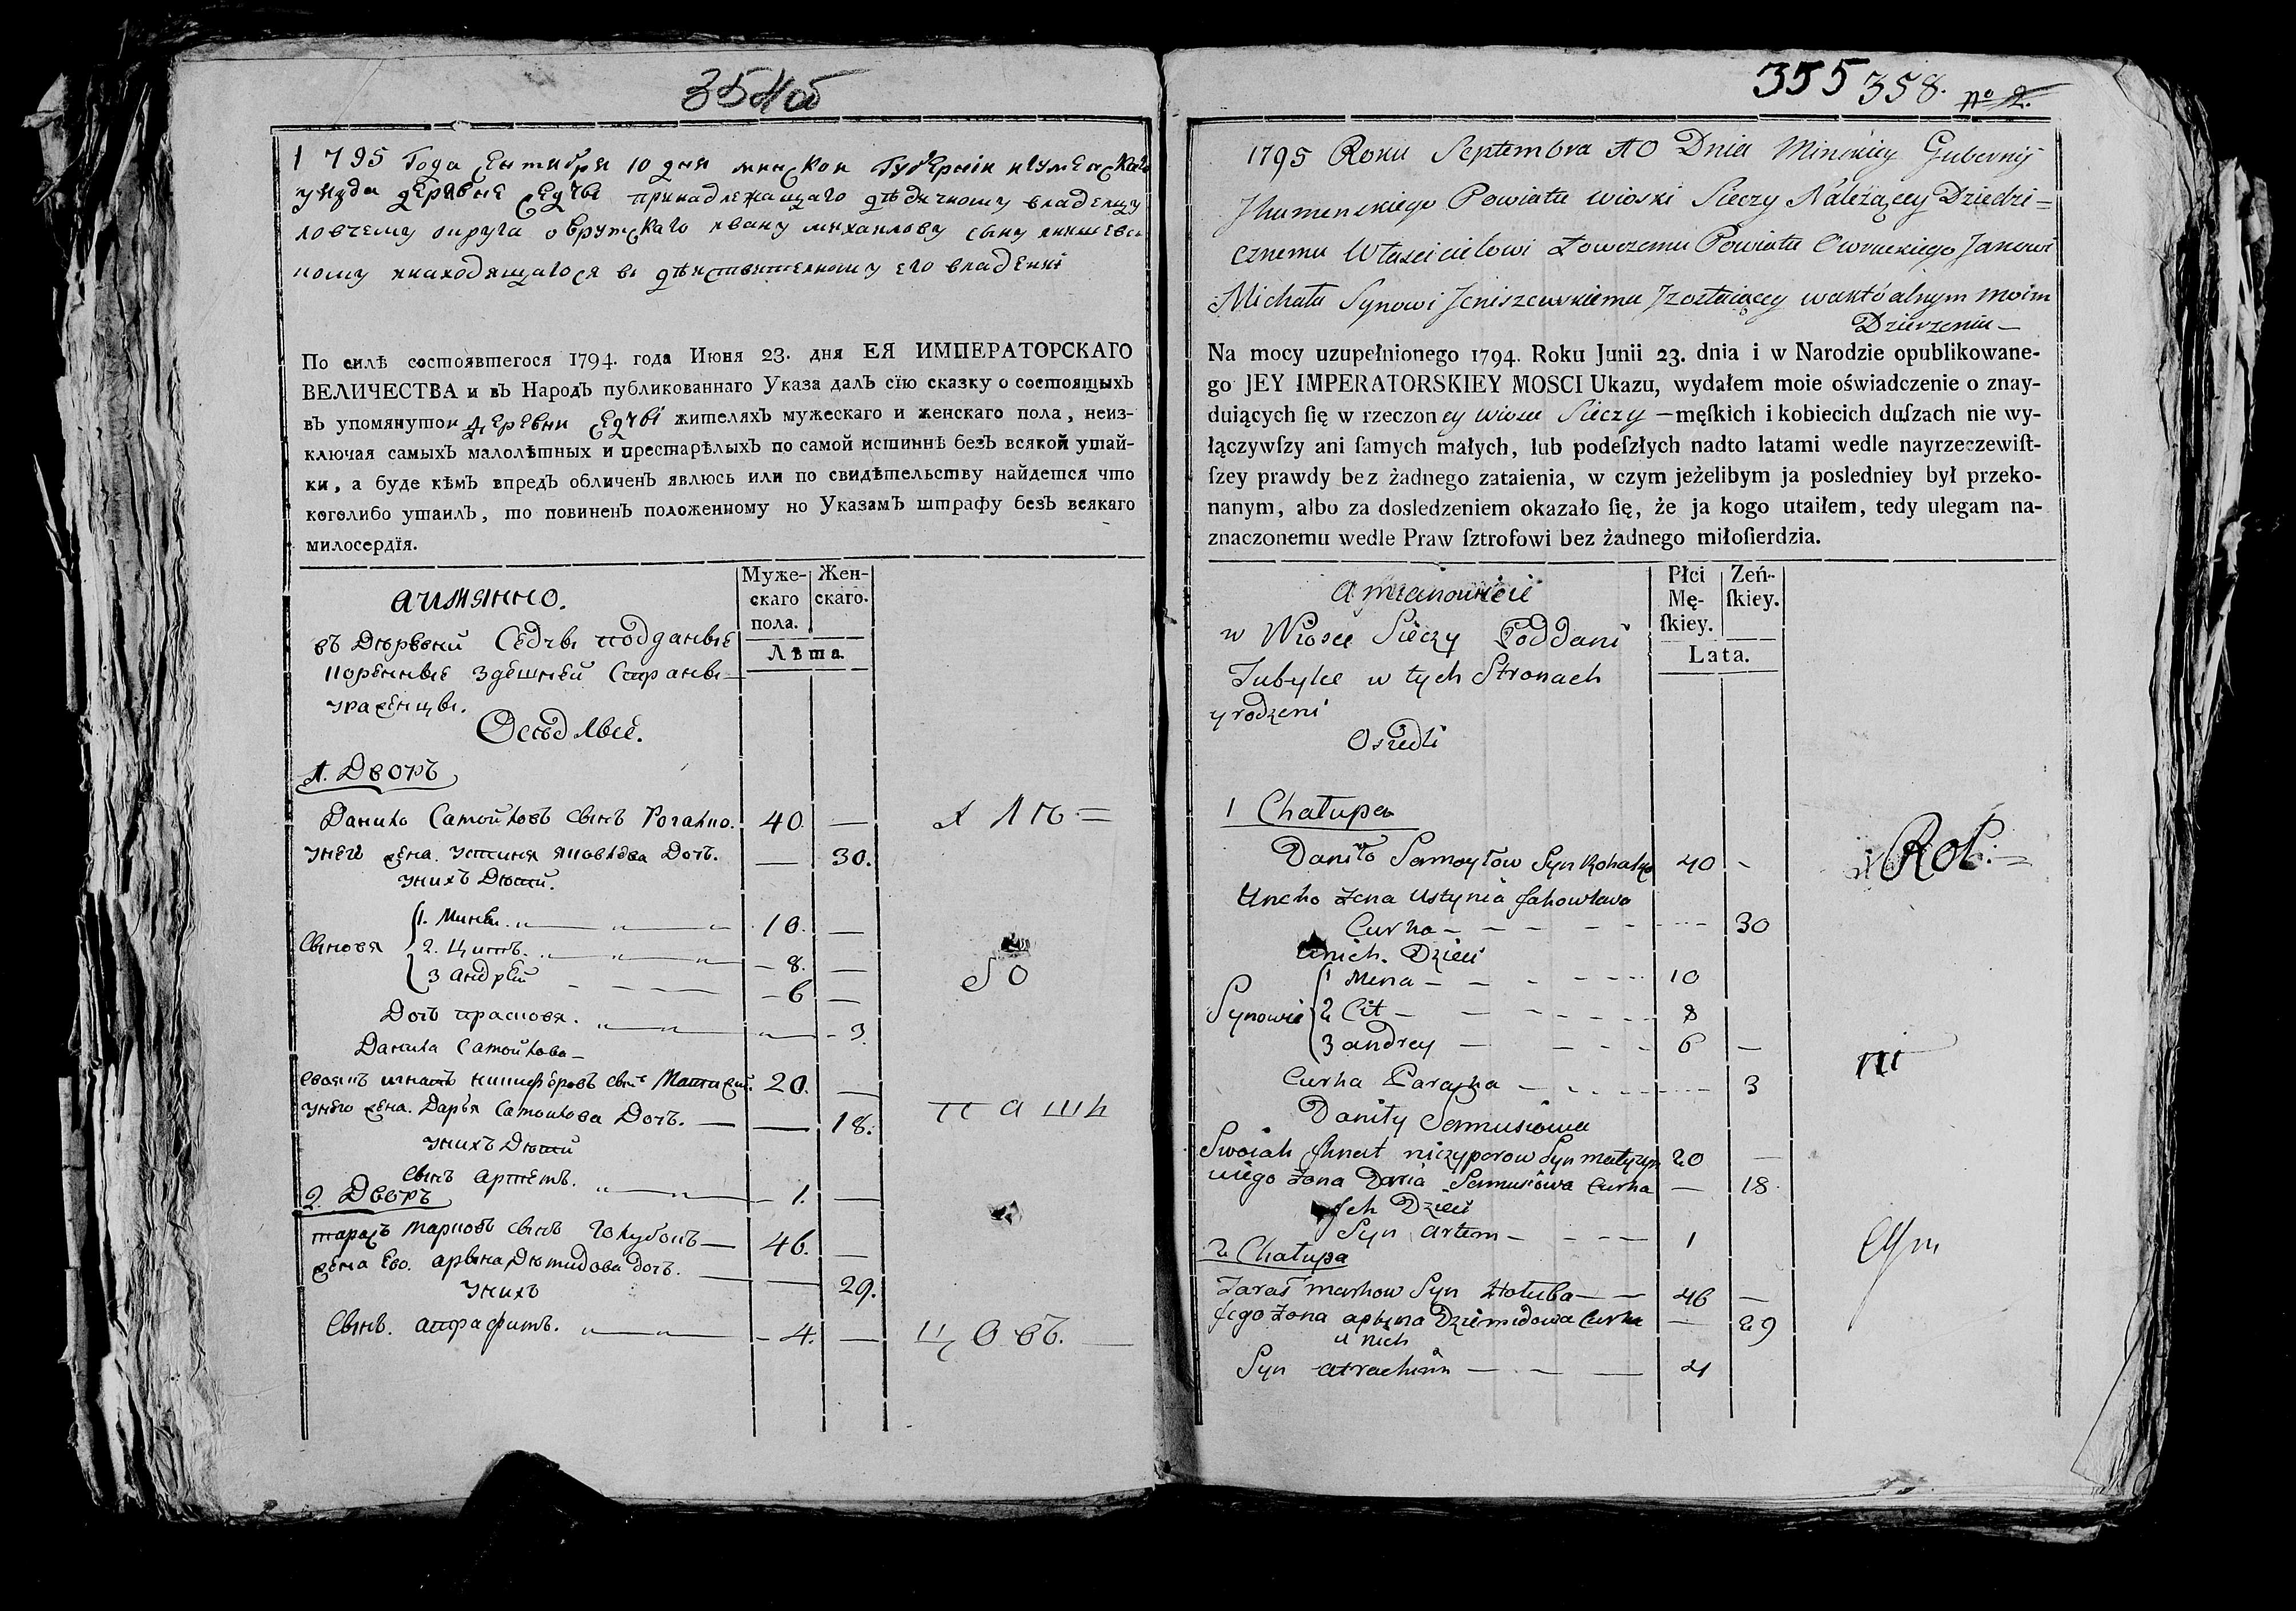 354 об
1795 Года Сентября 10 дня минской Губернии игуменскаго
уезда деревне Седчы принадлежащаго дѣдичному владельцу
ловчему округа оврутскаго ивану михаилову сыну
ному инаходящагося в дѣйствительному его владении
По силѣ состоявшегося 1794. года Июня 23. дня ЕЯ ИМПЕРАТОРСКАГО
ВЕЛИЧЕСТВА и въ НародЪ публикованнаго Указа далЪ сїю сказку о состоящыхЪ
въ упомянутои деревни Седчы жителяхЪ мужескаго и женскаго пола, неиз-
ключая самыхЪ малолѣтныхЪ и престарѣлыхЪ по самой истиннѣ безЪ всякой утай-
ки, а буде кѣмЪ впредЪ обличенЪ явлюсь или по свидѣтельству найдется что
коголибо утаилЪ, то повиненЪ положенному по УказамЪ штрафу безЪ всякаго
милосердїя.
аимянно.
Муже-
скаго
пола.
Жен-
скаго.
Лѣта
въ Дѣрѣвни Седчы подданые
коренные здешней Стораны
Осѣдлые.
1. Дворъ
Данило Самойловъ сынъ Рогалко. 40. —
унего жена Устиня Яковлева Дочь. — 30.
унихъ Дѣти.
Сыновя
1. Мина — 10. —
2. Цитъ. — 8. —
3 Андрей — 6 —
Дочь прасковя. — 3
Данила Самойлова —
своякъ игнатъ ничипѣровъ сынъ 20. —
унего жена. Дарья Самойлова Дочь. — 18.
унихъ Дѣти
сынъ артемъ. — 1. —
2. Дворъ
тарасъ марковъ сынъ Голубокъ — 46. —
жена Его. Дѣмидова дочь. — 29.
унихъ
Сынъ. — 4. —
355 358. no 2.
1795 Roku Septembra 10 Dnia Minskiey Gubernij
Jhumenskiego Powiatu wioski Sieczy Należącey Dziedzi=
cznemu Włascicielowi Łowczemu Powiatu Owruckiego Janowi
Michała Synowi Jeniszewskiemu Jzostaiącey waktóalnym moim
Dzierżeniu —
Na mocy uzupełnionego 1794. Roku Junii 23. dnia i w Narodzie opublikowane-
go JEY IMPERATORSKIEY MOSCI Ukazu, wydałem moie oświadczenie o znay-
duiących ſię w rzeczoney wiosce Sieczy — męſkich i kobiecich duſzach nie wy-
łączywſzy ani ſamych małych, lub podeſzłych nadto latami wedle nayrzeczewiſt-
ſzey prawdy bez żadnego zataienia, w czym jeżelibym ja posledniey był przeko-
nanym, albo za dosledzeniem okazało ſię, że ja kogo utaiłem, tedy ulegam na-
znaczonemu wedle Praw ſztrofowi bez żadnego miłoſierdzia.
Amianowicie
Płci
Mę-
ſkiey.
Zeń-
ſkiey.
Lata.
w Wiosce Sieczy Poddani
Jubylce w tych Stronach
yrodzeni
Osiedli
1 Chałupa
Daniło Samoyłow Syn Rohalko 40 —
Uneho Żena Ustynia Jakowlewa
Curka — 30
unich. Dzieci
Synowie
1 Mina — 10
2 Cit — 8
3 andrey — 6 —
Curka Paraska — 3
Daniły Samusiowa
Swoiak Jhnat niczyporow Syn 20 —
uiego Żona Daria Samusiowa Curka — 18
Jch Dzieci
Syn artem — 1
2 Chałupa
Taras markow Syn Hołuba — 46 —
Jego Żona Dziemidowa Curka — 29
u nich
Syn — 4
Rol:
ni